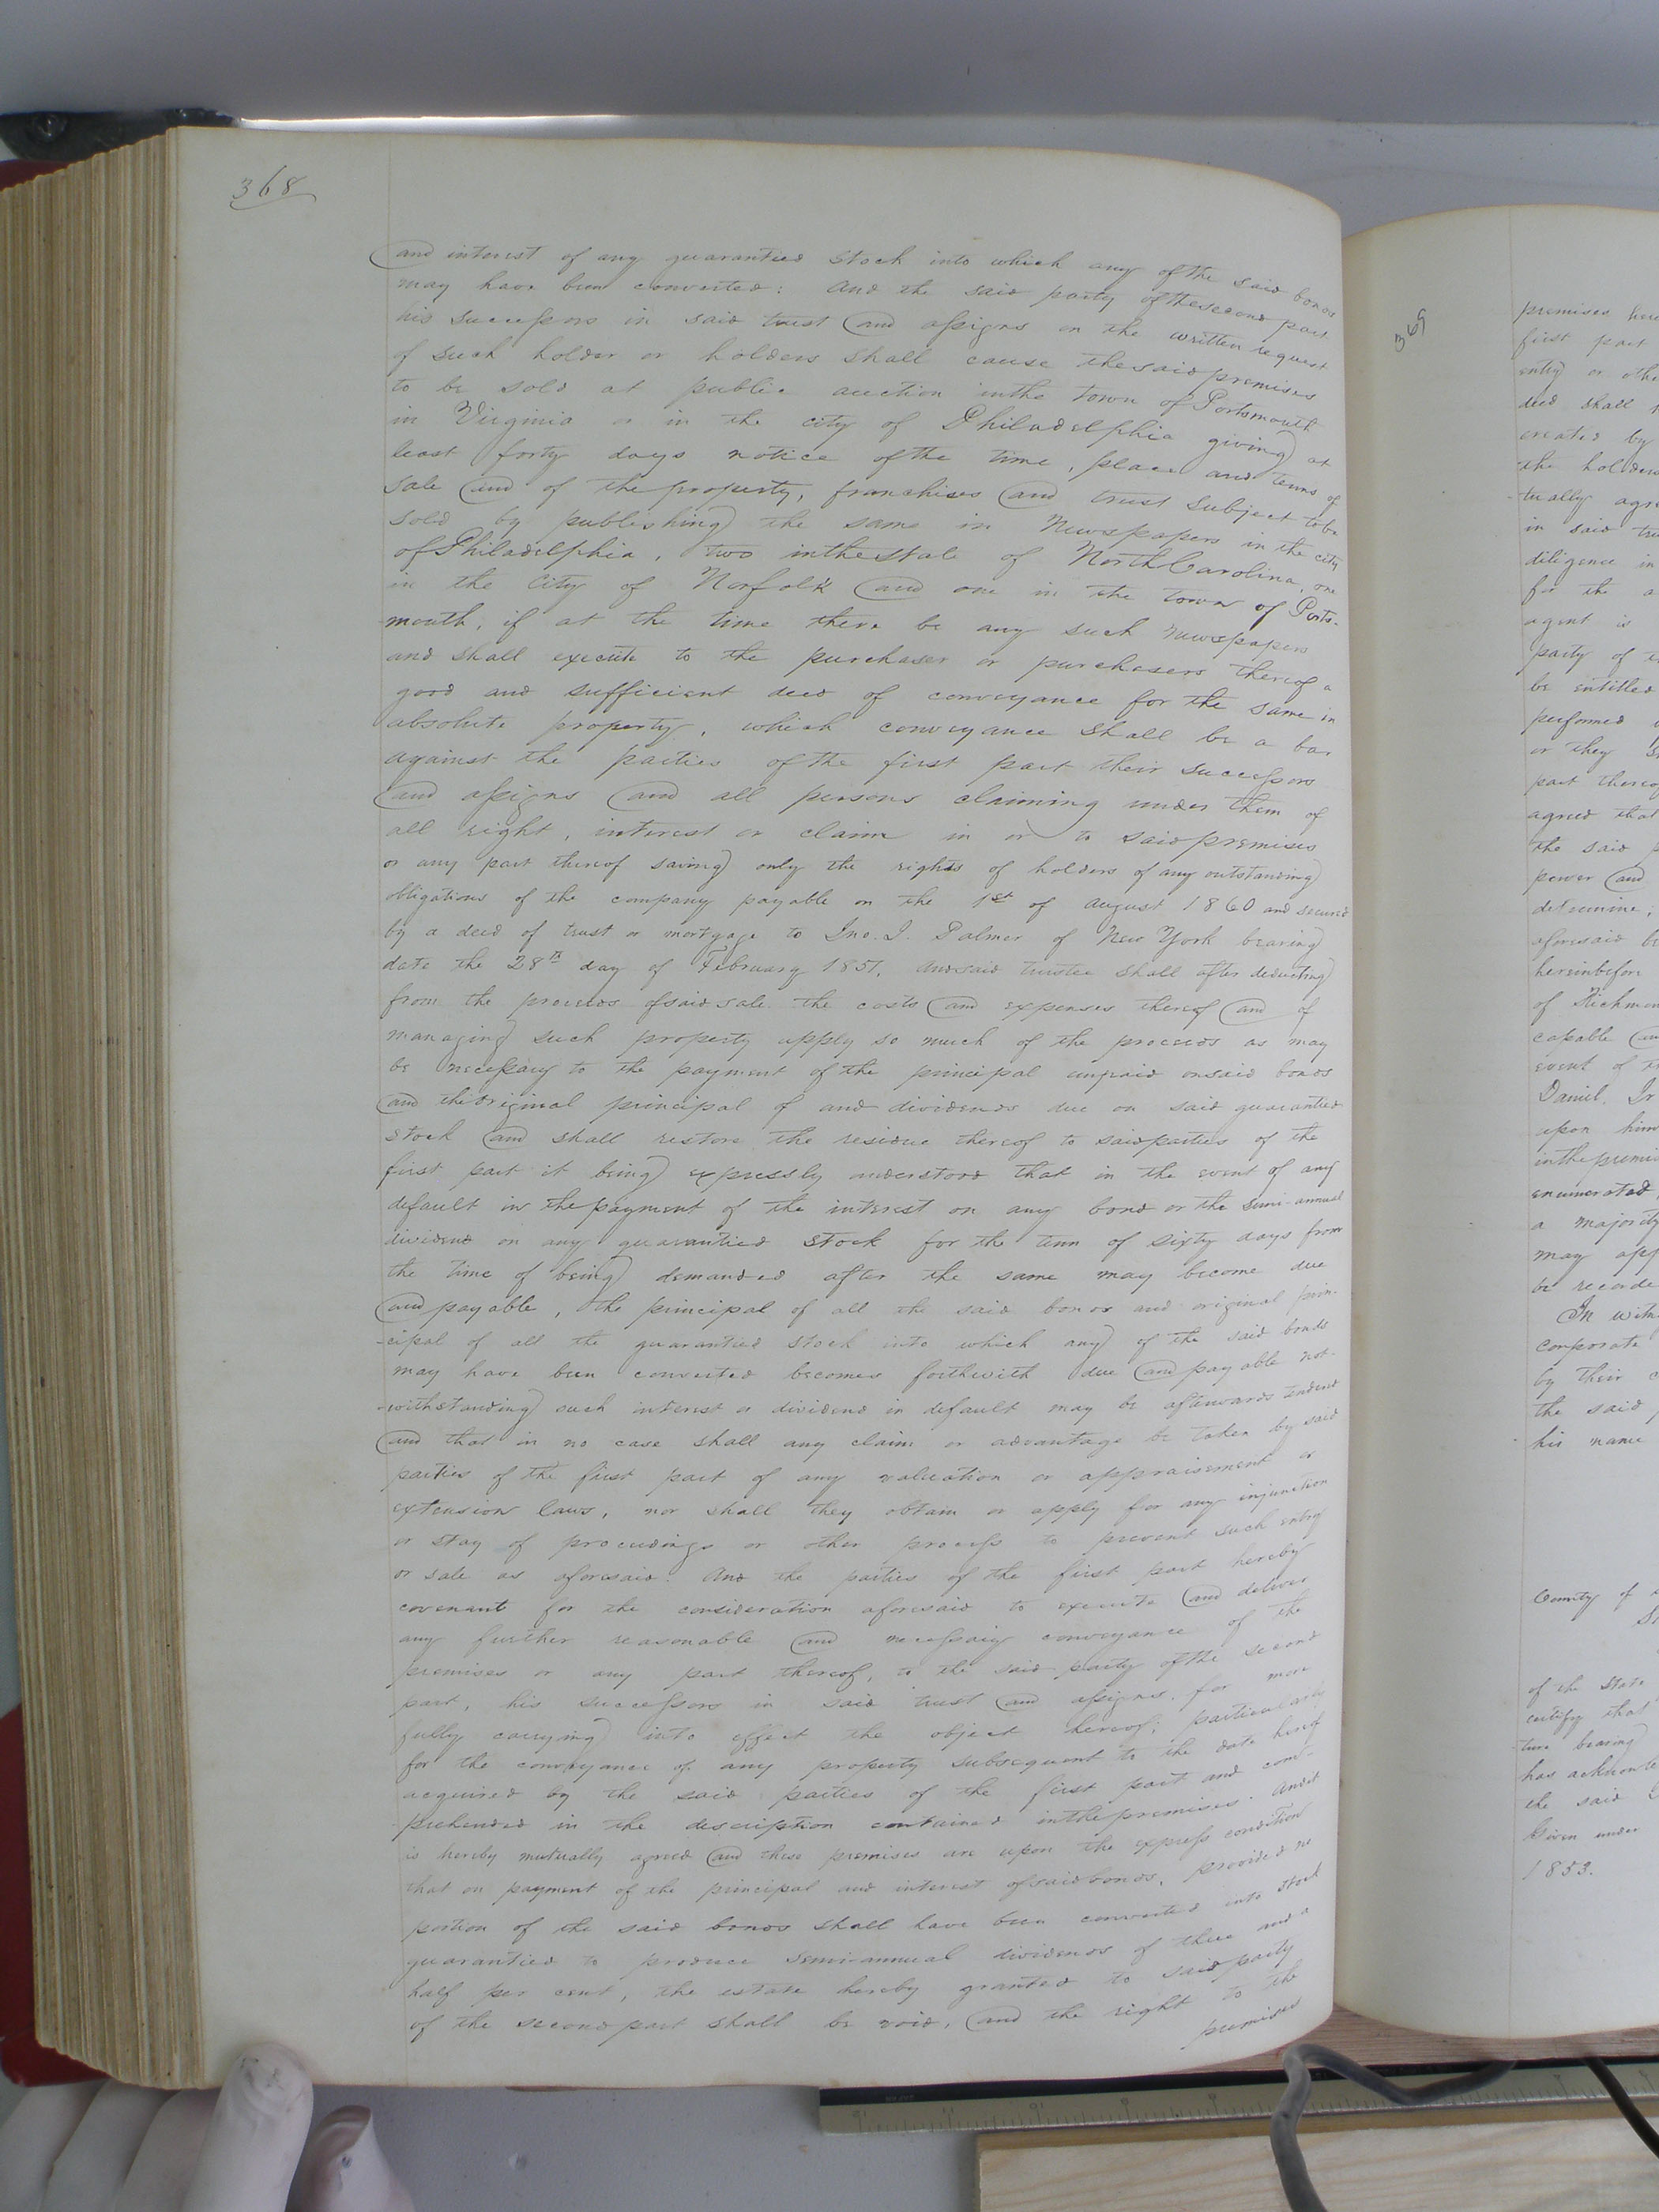 368
and interest of any guarantied stock into which any of the said bonds
may have been converted: And the said party of the second part
his successors in said trust and assigns on the written request
of such holder or holders shall cause the said premises
to be sold at public auction in the town of Portsmouth
in Virginia or in the city of Philadelphia giving at
least forty days notice of the time, place and terms of
sale and of the property, franchises and trust subject to be
sold by publishing the same in Newspapers in the city
of Philadelphia, two in the State of North Carolina, one
in the City of Norfolk and one in the town of Ports-
mouth, if at the time there be any such Newspapers
and shall execute to the purchaser or purchasers thereof a
good and sufficient deed of conveyance for the same in
absolute property, which conveyance shall be a bar
against the parties of the first part their successors
and assigns and all persons claiming under them of
all right, interest or claim in or to said premises
or any part thereof saving only the rights of holders of any outstanding
obligations of the company payable on the 1st of August 1860 and secured
by a deed of trust or mortgage to Jno. J. Palmer of New York bearing
date the 28th day of February 1851, and said trustee shall after deducting
from the proceeds of said sale the costs and expenses thereof and of
managing such property apply so much of the proceeds as may
be necessary to the payment of the principal unpaid on said bonds
and the original principal of and dividends due on said guarantied
stock and shall restore the residue thereof to said parties of the
first part it being expressly understood that in the event of any
default in the payment of the interest on any bond or the semi-annual
dividend on any guarantied stock for the term of sixty days from
the time of being demanded after the same may become due
and payable, the principal of all the said bonds and original prin-
-cipal of all the guarantied stock into which any of the said bonds
may have been converted becomes forthwith due and payable not-
-withstanding such interest or dividend in default may be afterwards tendered
and that in no case shall any claim or advantage be taken by said
parties of the first part of any valuation or appraisement or
extension laws, nor shall they obtain or apply for any injunction
or stay of proceedings or other process to prevent such entry
or sale as aforesaid. And the parties of the first part hereby
covenant for the consideration aforesaid to execute and deliver
any further reasonable and necessary conveyance of the
premises or any part thereof, to the said party of the second
part, his successors in said trust and assigns, for more
fully carrying into effect the object hereof; particularly
for the conveyance of any property subsequent to the date hereof
acquired by the said parties of the first part and com-
prehended in the description contained in the premises. And it
is hereby mutually agreed and these premises are upon the express condition
that on payment of the principal and interest of said bonds, provided no
portion of the said bonds shall have been converted into stock
guarantied to produce semi-annual dividends of three and a
half per cent, the estate hereby granted to said party
of the second part shall be void, and the right to the
premises
369
premises
first part
entry or
deed shall
created by
the holders
tually
in said
diligence in
for the
agent is
party of
be entitled
performed
or they
part
agreed that
the said
power and
determine;
aforesaid
hereinbefore
of
capable
event of
Daniel.
upon him
in the
enumerated,
a majority
may
be
In
corporate
by their
the said
his name
County of
of the State
certify that
ture bearing
has
the said
Given under
1853.